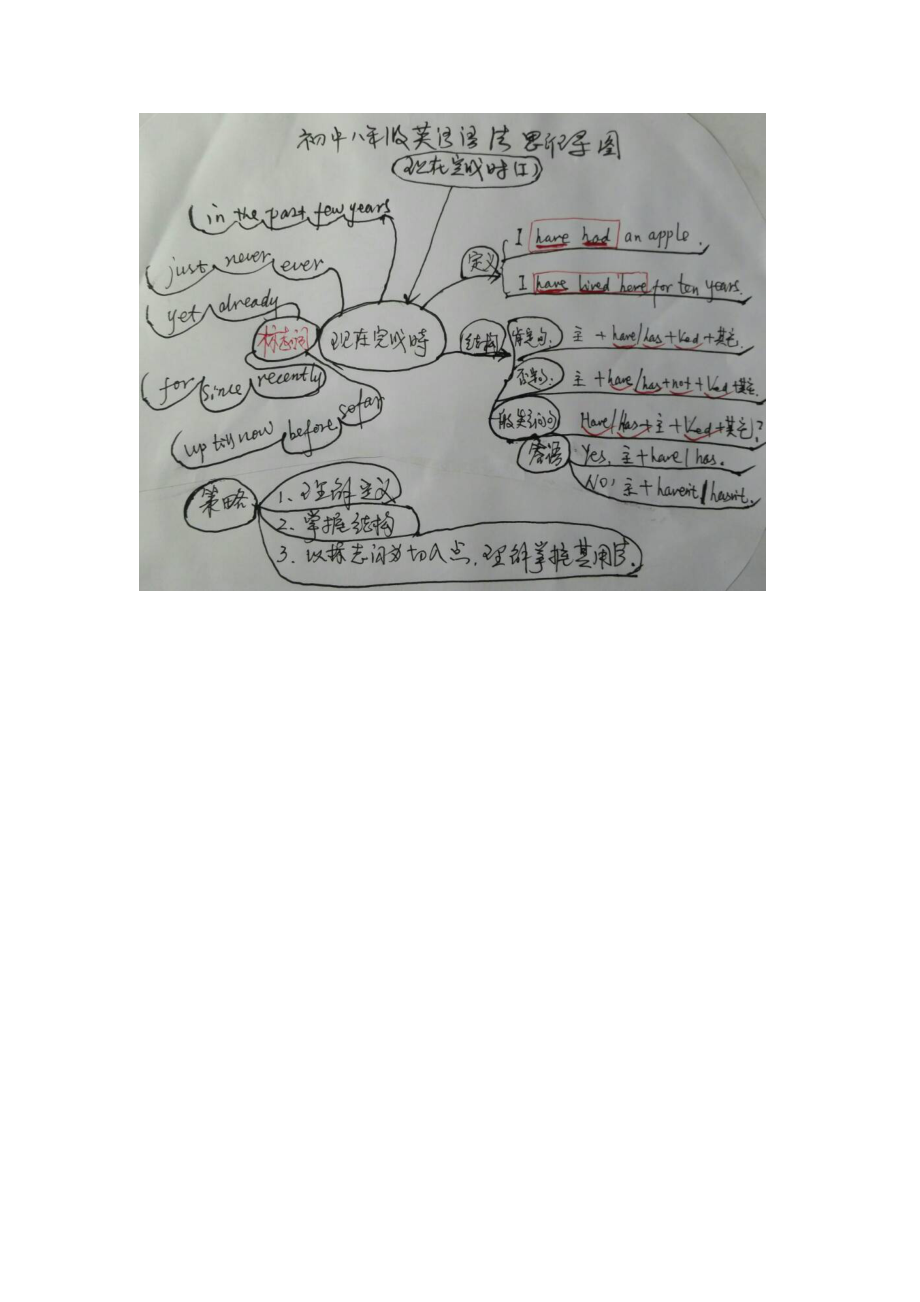 初中八年级英语语法思维导图
现在完成时(I)
in the past few years
just never ever
yet already
标志词
for since recently
up till now before so far
现在完成时
定义
I have had an apple.
I have lived here for ten years.
结构
肯定句: 主+have/has+Ved+其它.
否定句: 主+have/has+not+Ved+其它.
一般疑问句 Have/Has+主+Ved+其它?
答语 Yes, 主+have/has.
No, 主+haven't/hasn't.
策略
1、理解定义
2、掌握结构
3. 以标志词为切入点,理解掌握其用法.